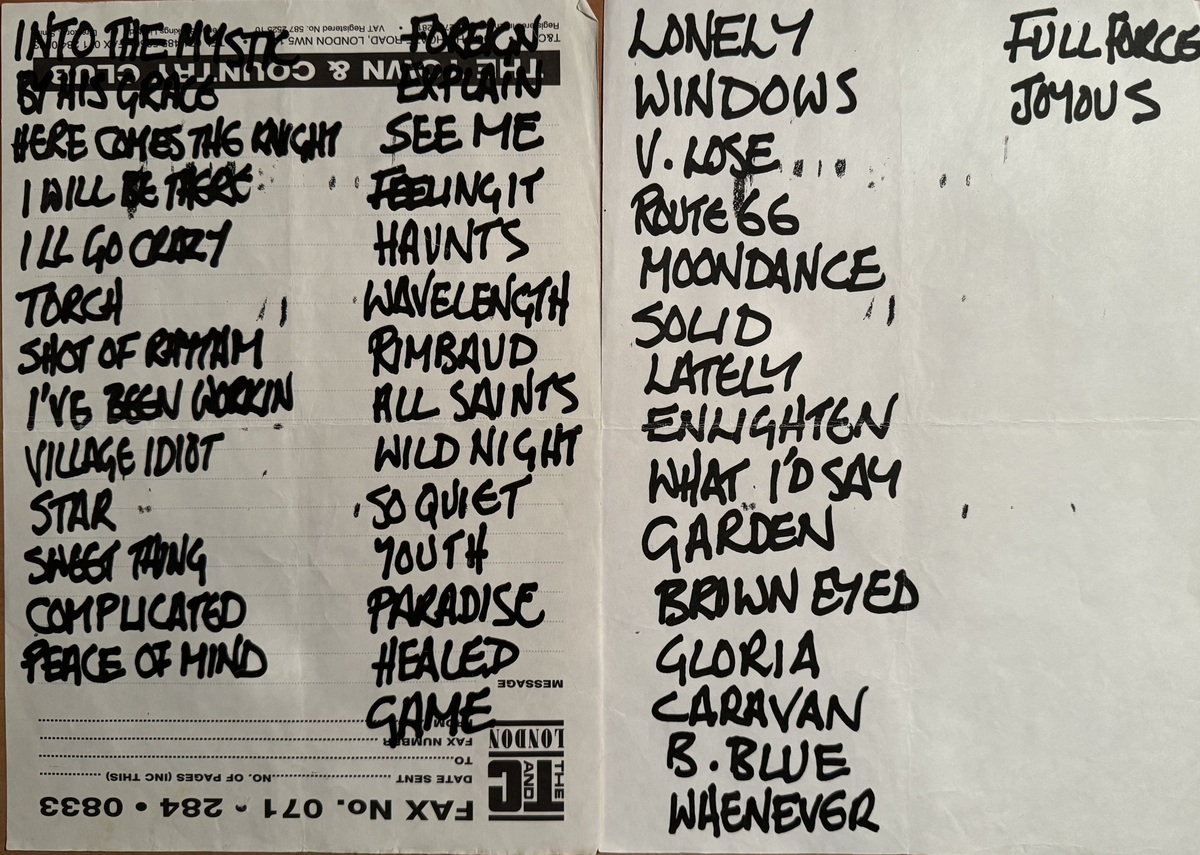 INTO THE MYSTIC
BY HIS GRACE
HERE COMES THE KNIGHT
I WILL BE THERE
ILL GO CRAZY
TORCH
SHOT OF RHYTHM
I'VE BEEN WORKIN
VILLAGE IDIOT
STAR
SWEET THING
COMPLICATED
PEACE OF MIND
FOREIGN
EXPLAIN
SEE ME
FEELING IT
HAUNTS
WAVELENGTH
RIMBAUD
ALL SAINTS
WILD NIGHT
SO QUIET
YOUTH
PARADISE
HEALED
GAME
LONELY
WINDOWS
V. LOSE
ROUTE 66
MOONDANCE
SOLID
LATELY
ENLIGHTEN
WHAT I'D SAY
GARDEN
BROWN EYED
GLORIA
CARAVAN
B. BLUE
WHENEVER
FULL FORCE
JOYOUS
THE T AND C LONDON
FAX No. 071 • 284 • 0833
DATE SENT NO. OF PAGES (INC THIS)
TO
FAX NUMBER
FROM
MESSAGE
THE TOWN & COUNTRY CLUB
ROAD, LONDON NW5
VAT Registered No. 587 2525